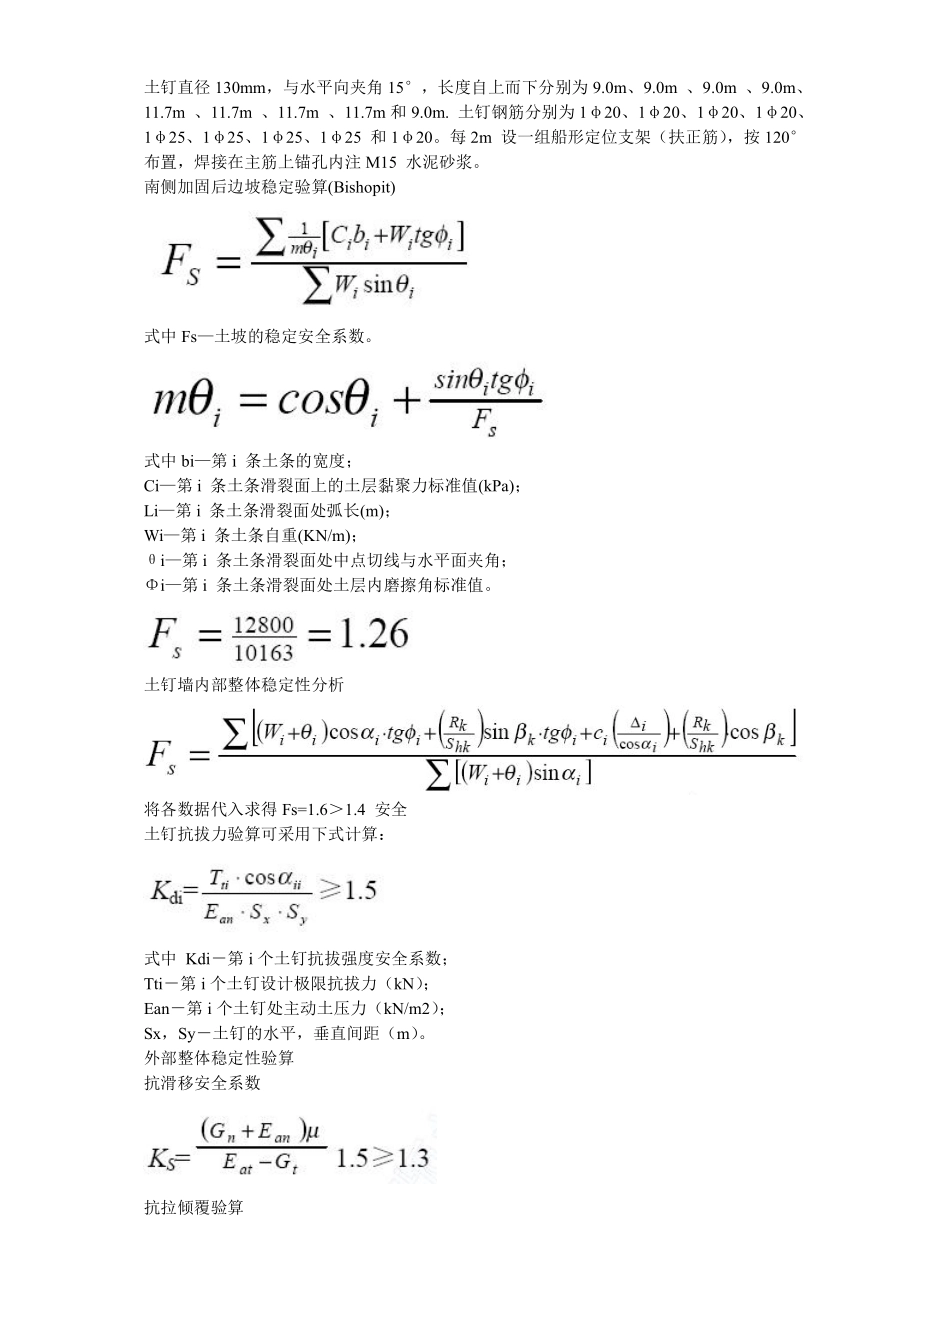 土钉直径 130mm，与水平向夹角 15°，长度自上而下分别为 9.0m、9.0m 、9.0m 、9.0m、
11.7m 、11.7m 、11.7m 、11.7m 和 9.0m. 土钉钢筋分别为 1φ20、1φ20、1φ20、1φ20、
1φ25、1φ25、1φ25、1φ25 和 1φ20。每 2m 设一组船形定位支架（扶正筋），按 120°
布置，焊接在主筋上锚孔内注 M15 水泥砂浆。
南侧加固后边坡稳定验算(Bishopit)
F_S = ∑ 1/mθ_i [C_i b_i + W_i tgφ_i] / ∑ W_i sinθ_i
式中 Fs—土坡的稳定安全系数。
mθ_i = cosθ_i + sinθ_i tgφ_i / F_s
式中 bi—第 i 条土条的宽度；
Ci—第 i 条土条滑裂面上的土层黏聚力标准值(kPa)；
Li—第 i 条土条滑裂面处弧长(m)；
Wi—第 i 条土条自重(KN/m)；
θi—第 i 条土条滑裂面处中点切线与水平面夹角；
Φi—第 i 条土条滑裂面处土层内磨擦角标准值。
F_s = 12800/10163 = 1.26
土钉墙内部整体稳定性分析
F_s = ∑[(W_i+θ_i)cosα_i·tgφ_i+(R_k/S_hk)sinβ_k·tgφ_i+c_i(Δ_i/cosα_i)+(R_k/S_hk)·cosβ_k] / ∑[(W_i+θ_i)sinα_i]
将各数据代入求得 Fs=1.6＞1.4 安全
土钉抗拔力验算可采用下式计算：
K_di = T_ti·cosα_ii / E_an·S_x·S_y ≥1.5
式中 Kdi－第 i 个土钉抗拔强度安全系数；
Tti－第 i 个土钉设计极限抗拔力（kN）；
Ean－第 i 个土钉处主动土压力（kN/m2）；
Sx，Sy－土钉的水平，垂直间距（m）。
外部整体稳定性验算
抗滑移安全系数
K_S = (G_n+E_an)μ / E_at−G_t 1.5≥1.3
抗拉倾覆验算